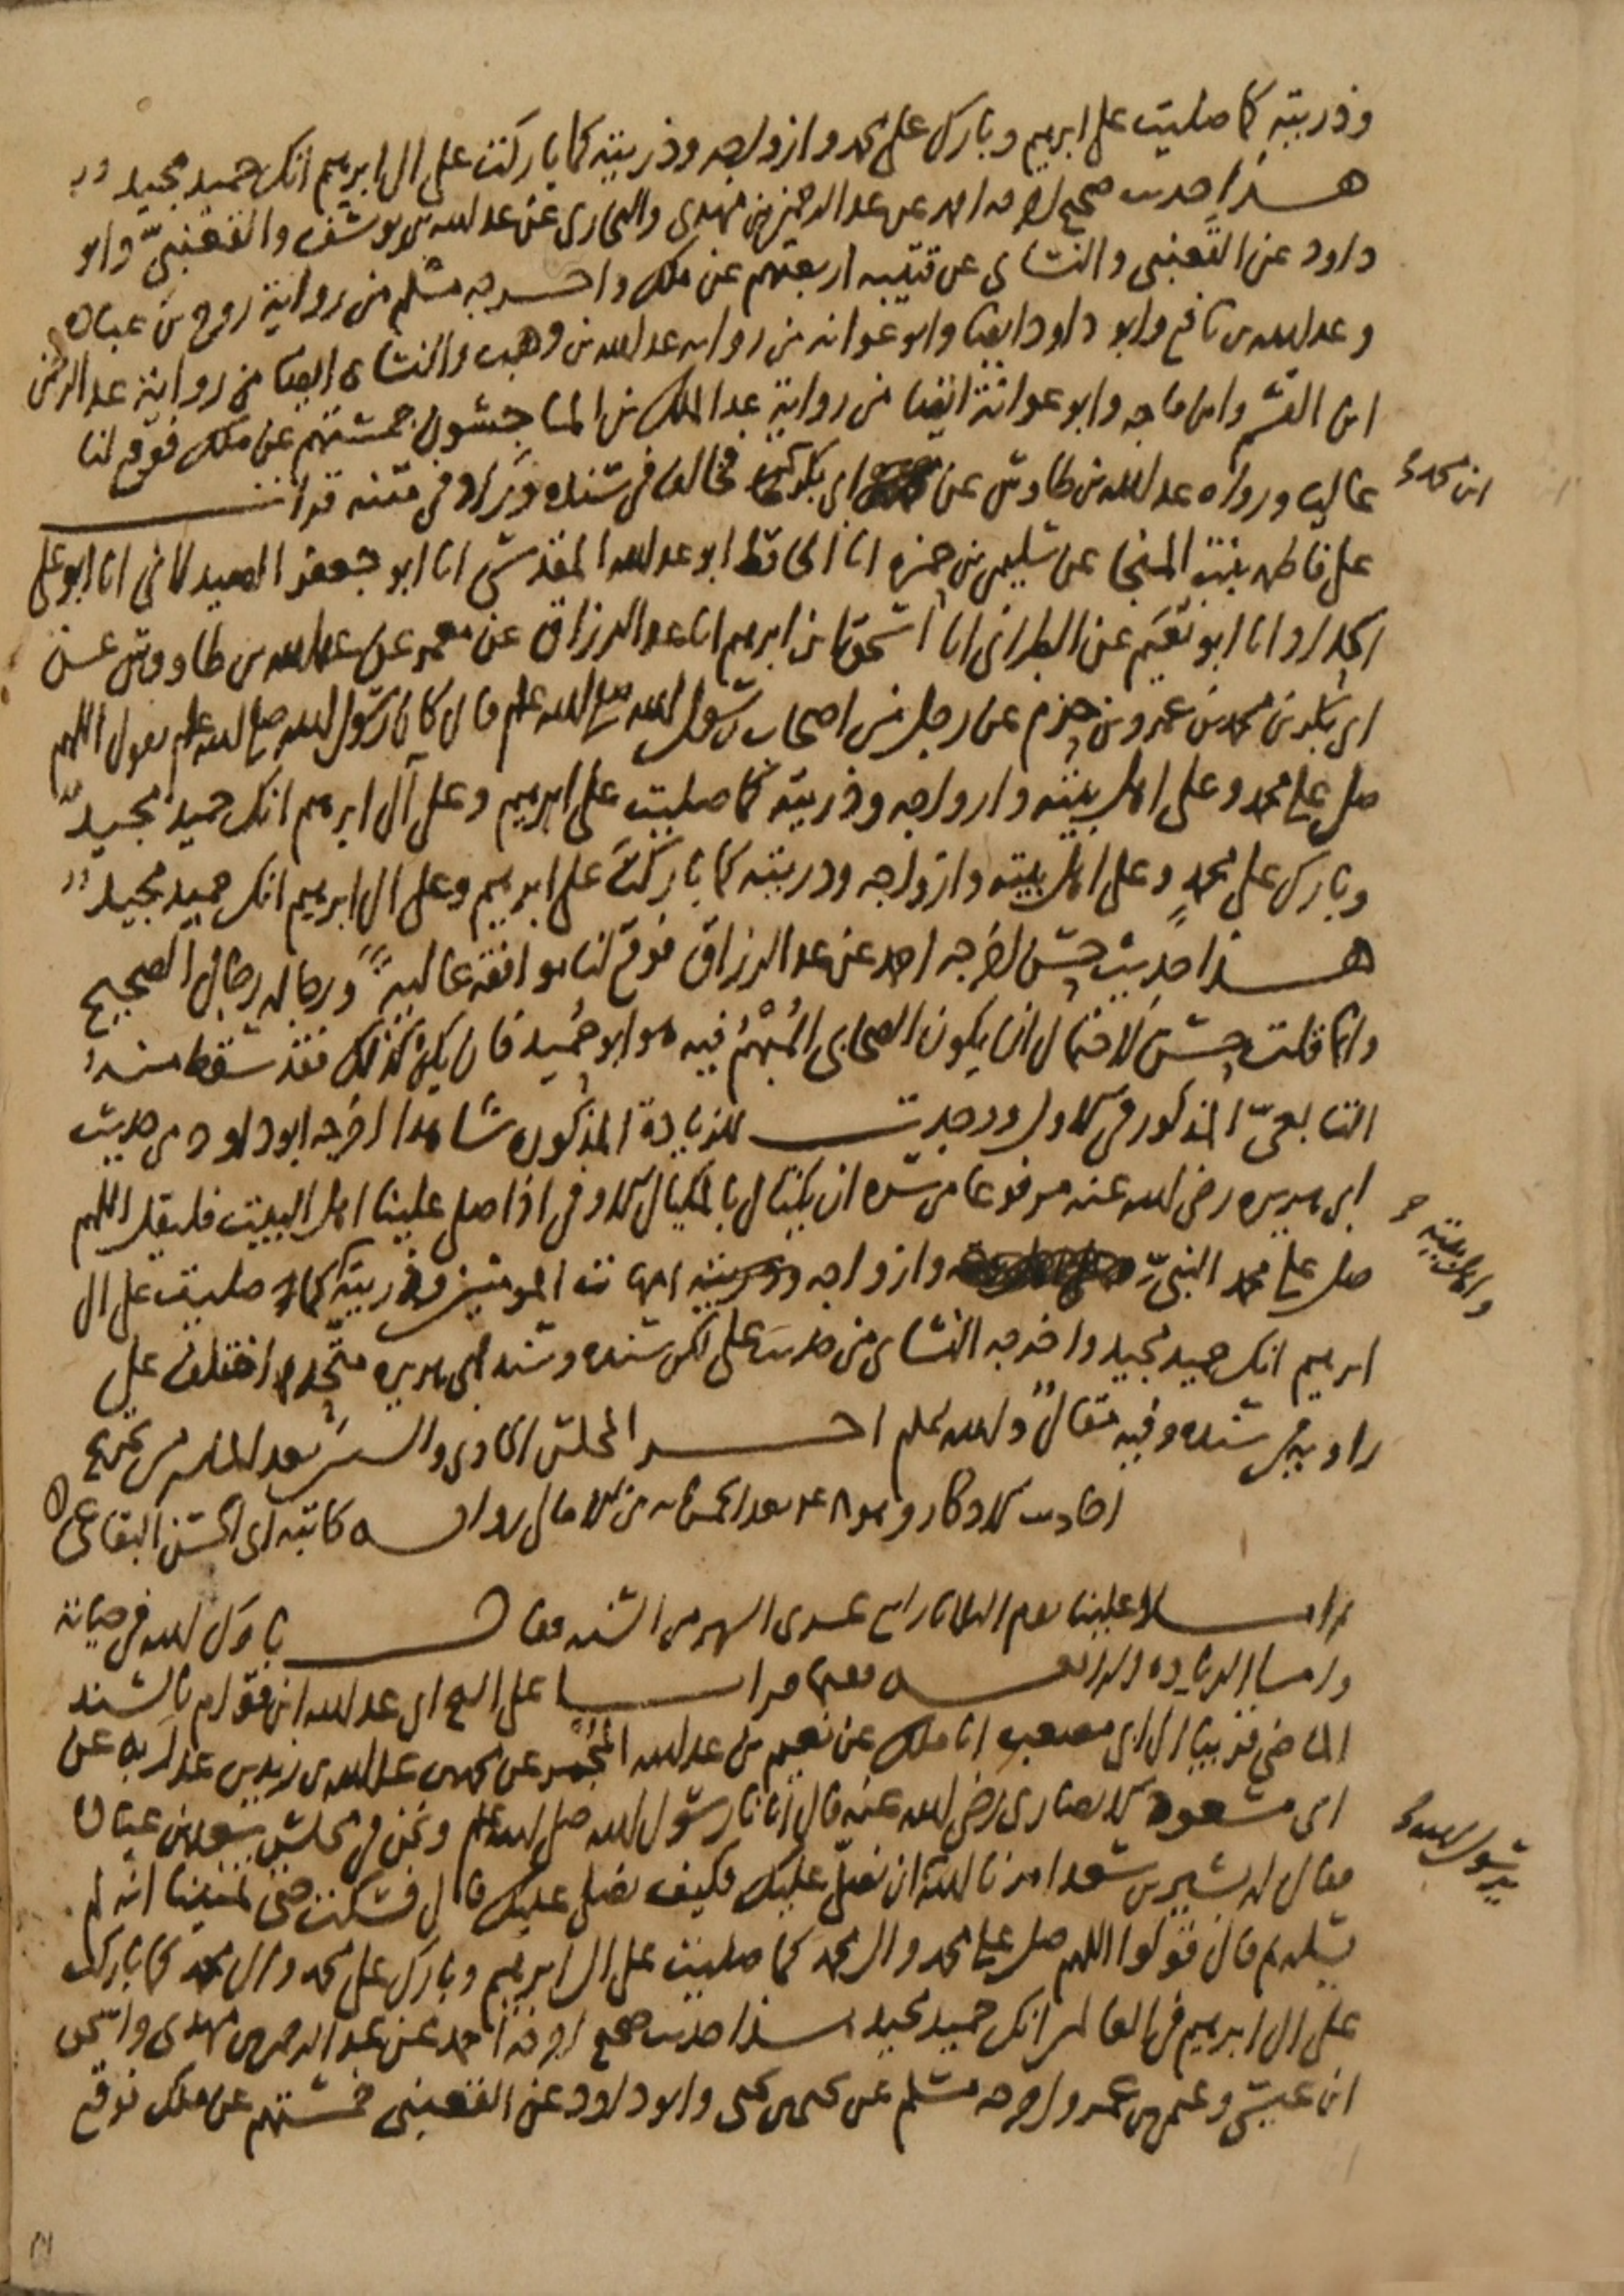 وذريته كما صليت على ابرهيم وبارك على محمد وازواجه وذريته كما باركت على ال ابرهيم انك حميد مجيد
هذا حديث صحيح اخرجه احمد عن عبد الرحمن بن مهدي والبخاري عن عبد الله بن يوسف والقعنبي وابو
داود عن القعنبي والنسائ عن قتيبه اربعتهم عن ملك واخرجه مسلم من رواية روح بن عباده
وعبد الله بن نافع وابو داود ايضا وابو عوانه من روايه عبد الله بن وهب والنسائ ايضا من رواية عبد الرحمن
ابن القسم وابن ماجه وابو عوانة ايضا من رواية عبد الملك بن الماجشون خمستهم عن ملك فوقع لنا
عاليا ورواه عبد الله بن طاوس عن ابي بكر فخالف في سنده وزاد في متنه قرات
ابن محمد
على فاطمه بنت المنجا عن سليمن بن حمزه انا الحافظ ابو عبد الله المقدسي انا ابو جعفر الصيدلاني انا ابو علي
الحداد انا ابو نعيم عن الطبراني انا اسحق بن ابرهيم انا عبد الرزاق عن معمر عن عبد الله بن طاووس عن
ابي بكر بن محمد بن عمرو بن حزم عن رجل من اصحاب رسول الله صلى الله عليه وسلم قال كان رسول الله صلى الله عليه وسلم يقول اللهم
صل على محمد وعلى اهل بيته وازواجه وذريته كما صليت على ابرهيم وعلى آل ابرهيم انك حميد مجيد
وبارك على محمد وعلى اهل بيته وازواجه وذريته كما باركت على ابرهيم وعلى ال ابرهيم انك حميد مجيد
هذا حديث حسن اخرجه احمد عن عبد الرزاق فوقع لنا موافقة عالية ورجاله رجال الصحيح
وانما قلت حسن لاحتمال ان يكون الصحابي المبهم فيه هو ابو حميد فان يكن كذلك فقد سقط منه
التابعي المذكور في الاول ووجدت للزيادة المذكوره شاهدا اخرجه ابو داود من حديث
ابي هريره رضي الله عنه مرفوعا من سره ان يكتال بالمكيال الاوفى اذا صلى علينا اهل البيت فليقل اللهم
صل على محمد النبي وازواجه امهات المومنين وذريته كما صليت على ال
واهل بيته
ابرهيم انك حميد مجيد واخرجه النسائ من حديث علي لكن سنده وسند ابي هريره متحد اختلف على
راويه في سنده وفيه مقال والله اعلم اخر المجلس الحادي والستين بعد المايه من تخريج
احاديث الاذكار وهو ال بعد الخمس مايه من الامالي روايه كاتبه ابي الحسن البقاعي عن
املا علينا يوم الثلاثا رابع عشري الشهر من السنه فقال بارك الله في حياته
واما الزياده الرابعه فيما قرات على الشيخ ابي عبد الله ابن قوام بالسند
الماضي قريبا الى ابي مصعب انا ملك عن نعيم بن عبد الله المجمر عن محمد بن عبد الله بن زيد بن عبد ربه عن
ابي مسعود الانصاري رضي الله عنه قال اتانا رسول الله صلى الله عليه وسلم ونحن في مجلس سعد بن عباده
فقال له بشير بن سعد امرنا الله ان نصلي عليك فكيف نصلي عليك قال فسكت حتى تمنينا انه لم
رسول الله
يسله ثم قال قولوا اللهم صل على محمد وال محمد كما صليت على ال ابرهيم وبارك على محمد وال محمد كما باركت
على ال ابرهيم في العالمين انك حميد مجيد هذا حديث صحيح اخرجه احمد عن عبد الرحمن بن مهدي واسحق
ابن عيسى وعثمن بن عمر واخرجه مسلم عن يحيى بن يحيى وابو داود عن القعنبي خمستهم عن ملك فوقع